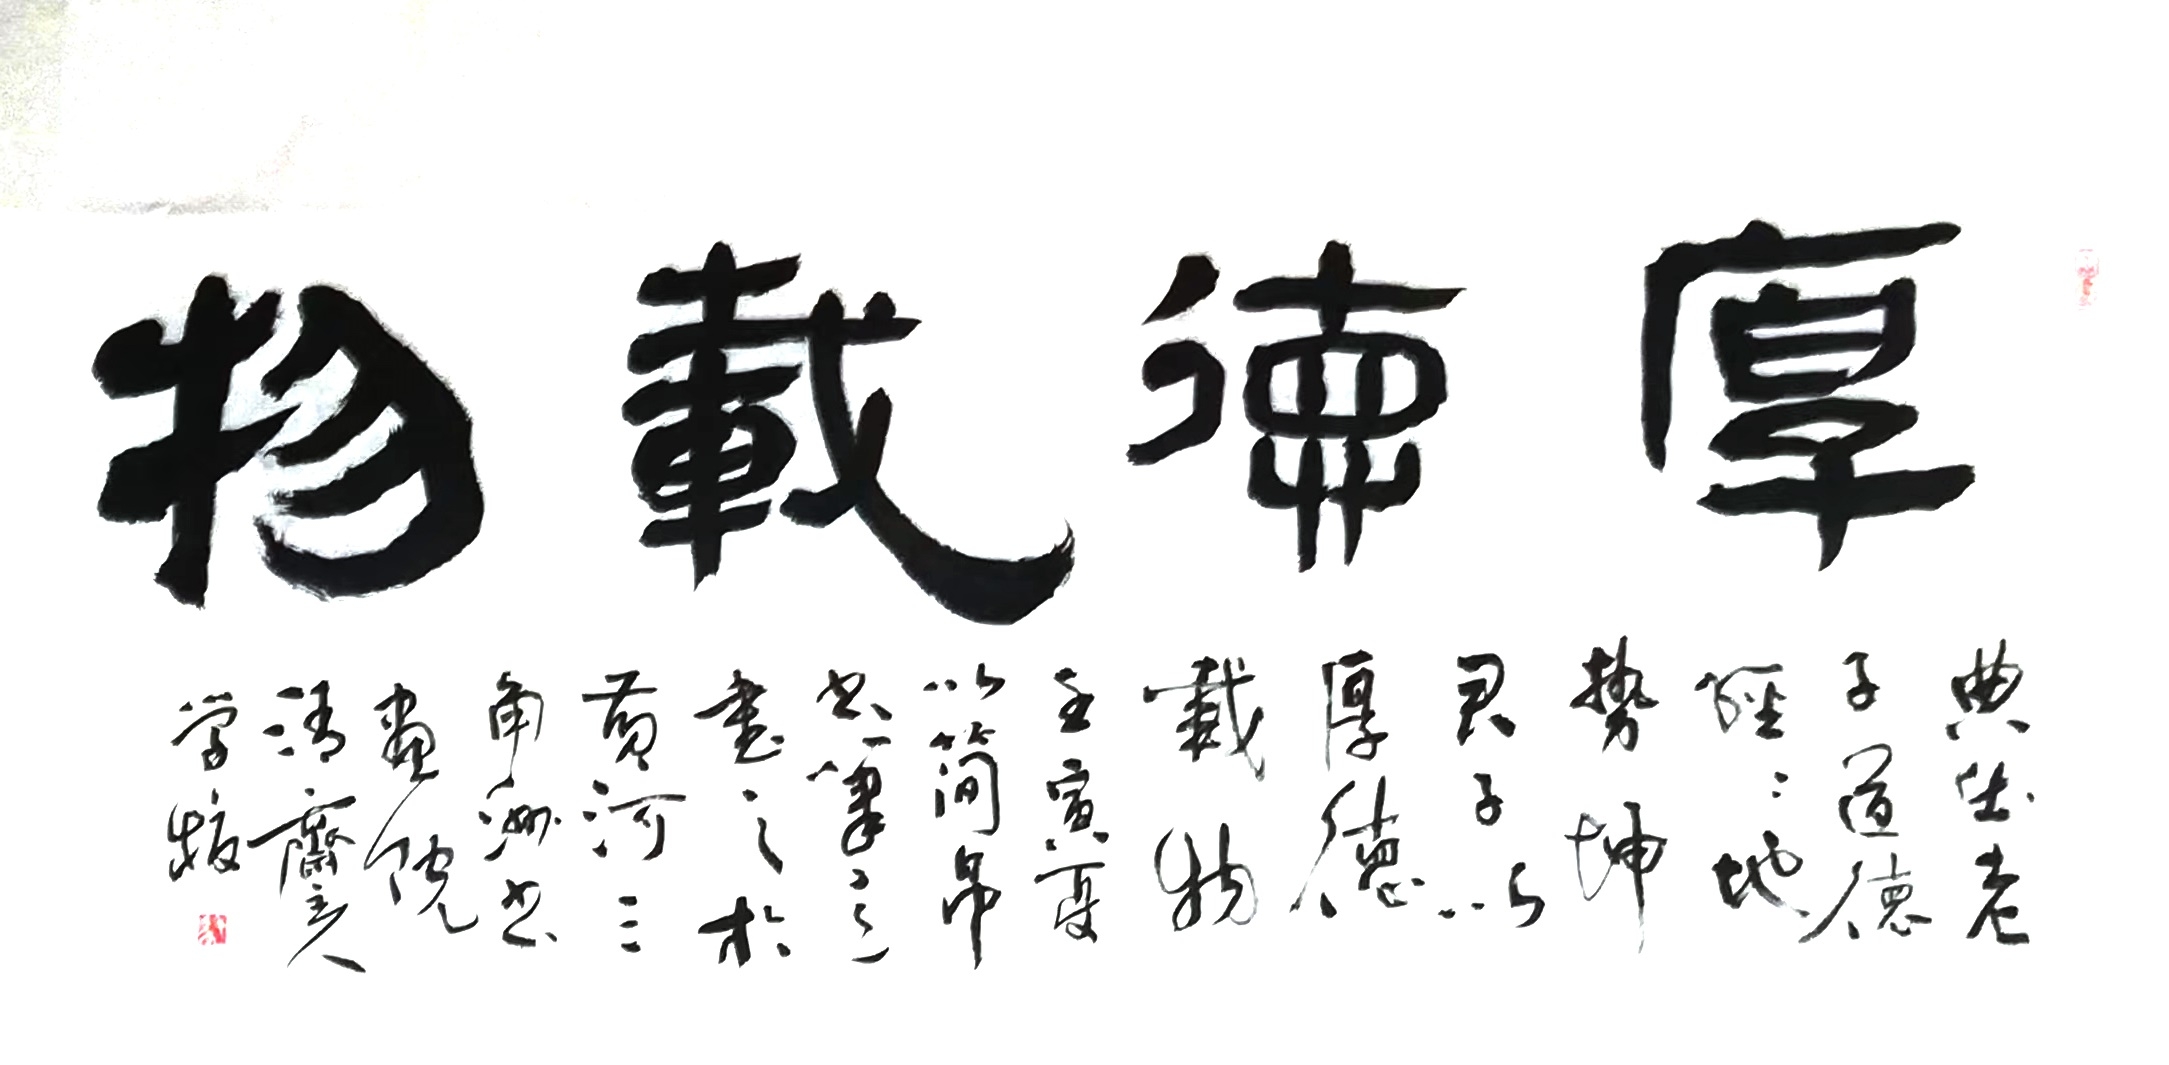 厚德載物
典出老
子道德
經：地
勢坤
君子以
厚德
載物
壬寅夏
以简帛
书筆意
書之於
黄河三
角洲书
畫院
清齋主人
学